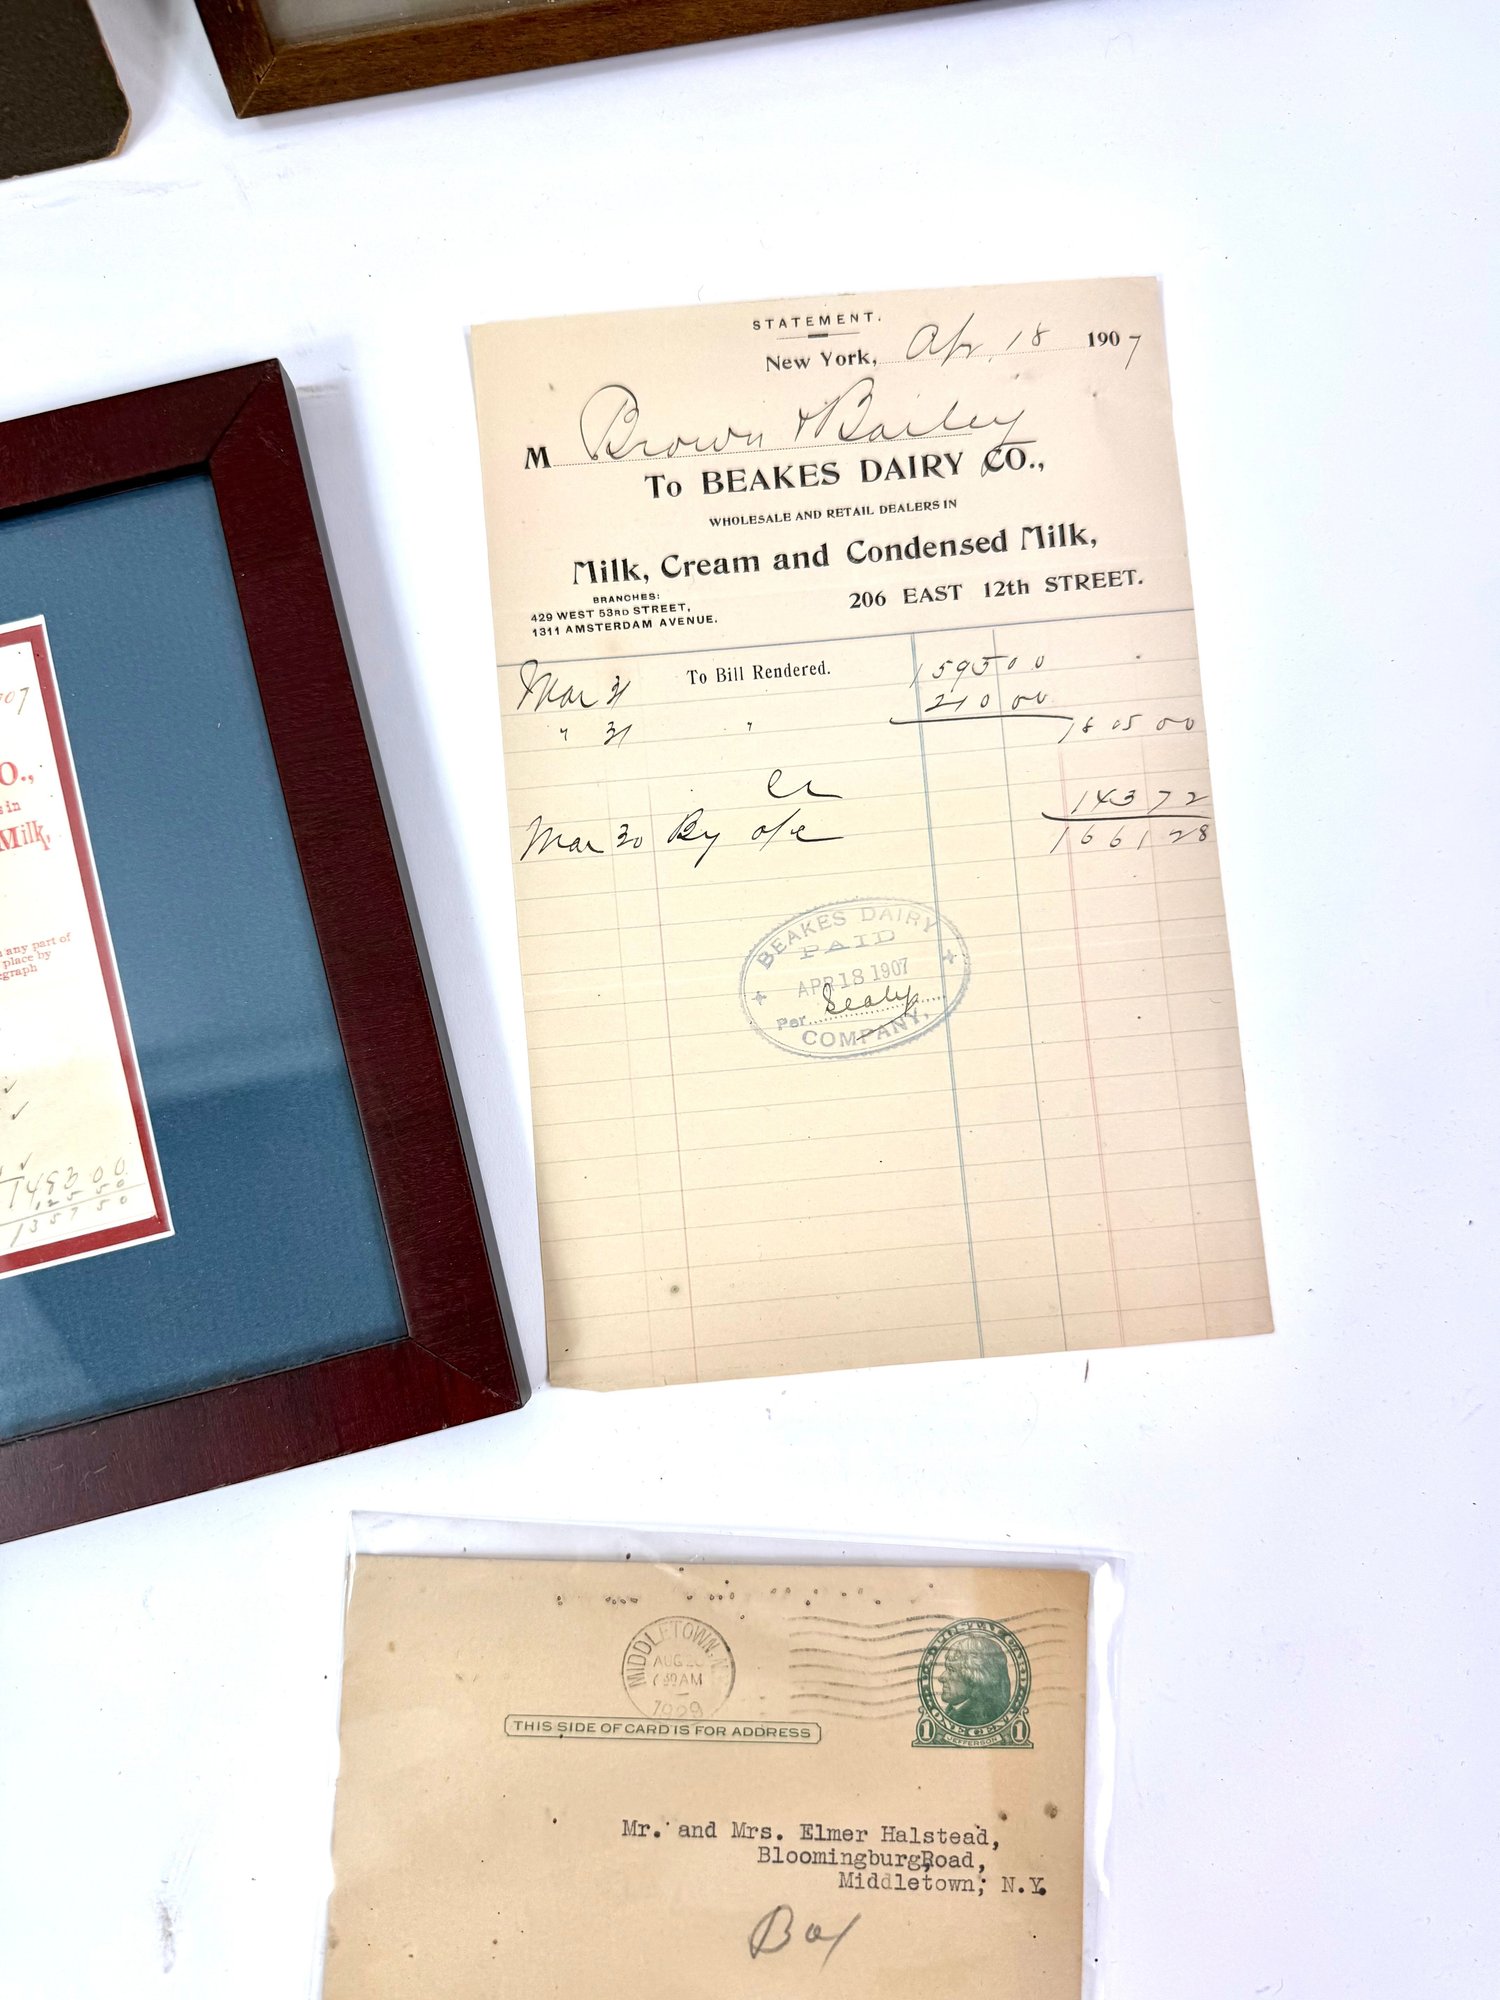 STATEMENT.
New York, Apr. 18 1907
M Brown & Bailey
To BEAKES DAIRY CO.,
WHOLESALE AND RETAIL DEALERS IN
Milk, Cream and Condensed Milk,
BRANCHES:
429 WEST 53RD STREET,
1311 AMSTERDAM AVENUE.
206 EAST 12th STREET.
Mar 31 To Bill Rendered. 1595 00
" 31 " 210 00
1805 00
Cr
Mar 30 By o/c 143 72
1661 28
BEAKES DAIRY
PAID
APR 18 1907
Per Sealy
COMPANY,
07
O.,
s in
Milk,
any part of
place by
graph
1483 00
125 50
1357 50
MIDDLETOWN, N.Y.
AUG 20
7 30 AM
1929
THIS SIDE OF CARD IS FOR ADDRESS
1 ONE CENT 1
JEFFERSON
Mr. and Mrs. Elmer Halstead,
Bloomingburg Road,
Middletown, N.Y.
Box